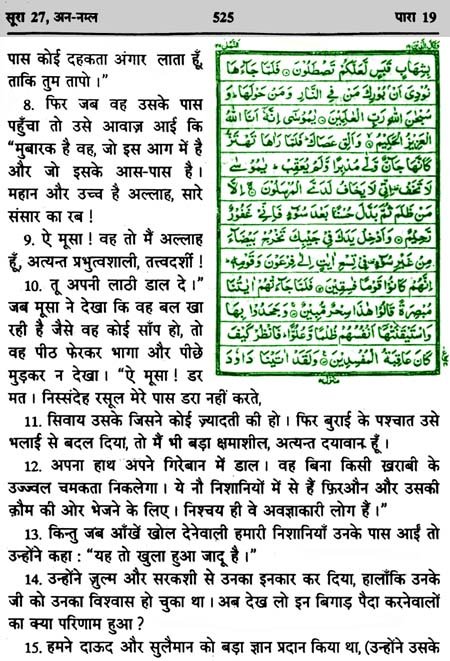 सूरा 27, अन-नम्ल 525 पारा 19
पास कोई दहकता अंगार लाता हूँ,
ताकि तुम तापो ।”
8. फिर जब वह उसके पास
पहुँचा तो उसे आवाज़ आई कि
“मुबारक है वह, जो इस आग में है
और जो इसके आस-पास है ।
महान और उच्च है अल्लाह, सारे
संसार का रब !
9. ऐ मूसा ! वह तो मैं अल्लाह
हूँ, अत्यन्त प्रभुत्वशाली, तत्त्वदर्शी !
10. तू अपनी लाठी डाल दे ।”
जब मूसा ने देखा कि वह बल खा
रही है जैसे वह कोई साँप हो, तो
वह पीठ फेरकर भागा और पीछे
मुड़कर न देखा । “ऐ मूसा ! डर
मत । निस्संदेह रसूल मेरे पास डरा नहीं करते,
11. सिवाय उसके जिसने कोई ज़्यादती की हो । फिर बुराई के पश्चात उसे
भलाई से बदल दिया, तो मैं भी बड़ा क्षमाशील, अत्यन्त दयावान हूँ ।
12. अपना हाथ अपने गिरेबान में डाल । वह बिना किसी ख़राबी के
उज्ज्वल चमकता निकलेगा । ये नौ निशानियों में से हैं फ़िरऔन और उसकी
क़ौम की ओर भेजने के लिए । निश्चय ही वे अवज्ञाकारी लोग हैं ।”
13. किन्तु जब आँखें खोल देनेवाली हमारी निशानियाँ उनके पास आईं तो
उन्होंने कहा : “यह तो खुला हुआ जादू है ।”
14. उन्होंने ज़ुल्म और सरकशी से उनका इनकार कर दिया, हालाँकि उनके
जी को उनका विश्वास हो चुका था । अब देख लो इन बिगाड़ पैदा करनेवालों
का क्या परिणाम हुआ ?
15. हमने दाऊद और सुलैमान को बड़ा ज्ञान प्रदान किया था, (उन्होंने उसके
بِشِهَابٍ قَبَسٍ لَّعَلَّكُمْ تَصْطَلُونَ ۝ فَلَمَّا جَآءَهَا
نُودِىَ أَنۢ بُورِكَ مَن فِى النَّارِ وَمَنْ حَوْلَهَا وَ
سُبْحٰنَ اللهِ رَبِّ الْعٰلَمِينَ ۝ يٰمُوسٰىٓ إِنَّهٗٓ أَنَا اللهُ
الْعَزِيزُ الْحَكِيمُ ۝ وَأَلْقِ عَصَاكَ فَلَمَّا رَاٰهَا تَهْتَزُّ
كَأَنَّهَا جَآنٌّ وَّلّٰى مُدْبِرًا وَّلَمْ يُعَقِّبْ يٰمُوسٰى
لَا تَخَفْ إِنِّى لَا يَخَافُ لَدَىَّ الْمُرْسَلُونَ ۝ إِلَّا
مَن ظَلَمَ ثُمَّ بَدَّلَ حُسْنًۢا بَعْدَ سُوٓءٍ فَإِنِّى غَفُورٌ
رَّحِيمٌ ۝ وَأَدْخِلْ يَدَكَ فِى جَيْبِكَ تَخْرُجْ بَيْضَآءَ
مِنْ غَيْرِ سُوٓءٍ فِى تِسْعِ اٰيٰتٍ إِلٰى فِرْعَوْنَ وَقَوْمِهٖ
إِنَّهُمْ كَانُوا قَوْمًا فٰسِقِينَ ۝ فَلَمَّا جَآءَتْهُمْ اٰيٰتُنَا
مُبْصِرَةً قَالُوا هٰذَا سِحْرٌ مُّبِينٌ ۝ وَجَحَدُوا بِهَا
وَاسْتَيْقَنَتْهَآ أَنفُسُهُمْ ظُلْمًا وَّعُلُوًّا فَانظُرْ كَيْفَ
كَانَ عَاقِبَةُ الْمُفْسِدِينَ ۝ وَلَقَدْ اٰتَيْنَا دَاوٗدَ